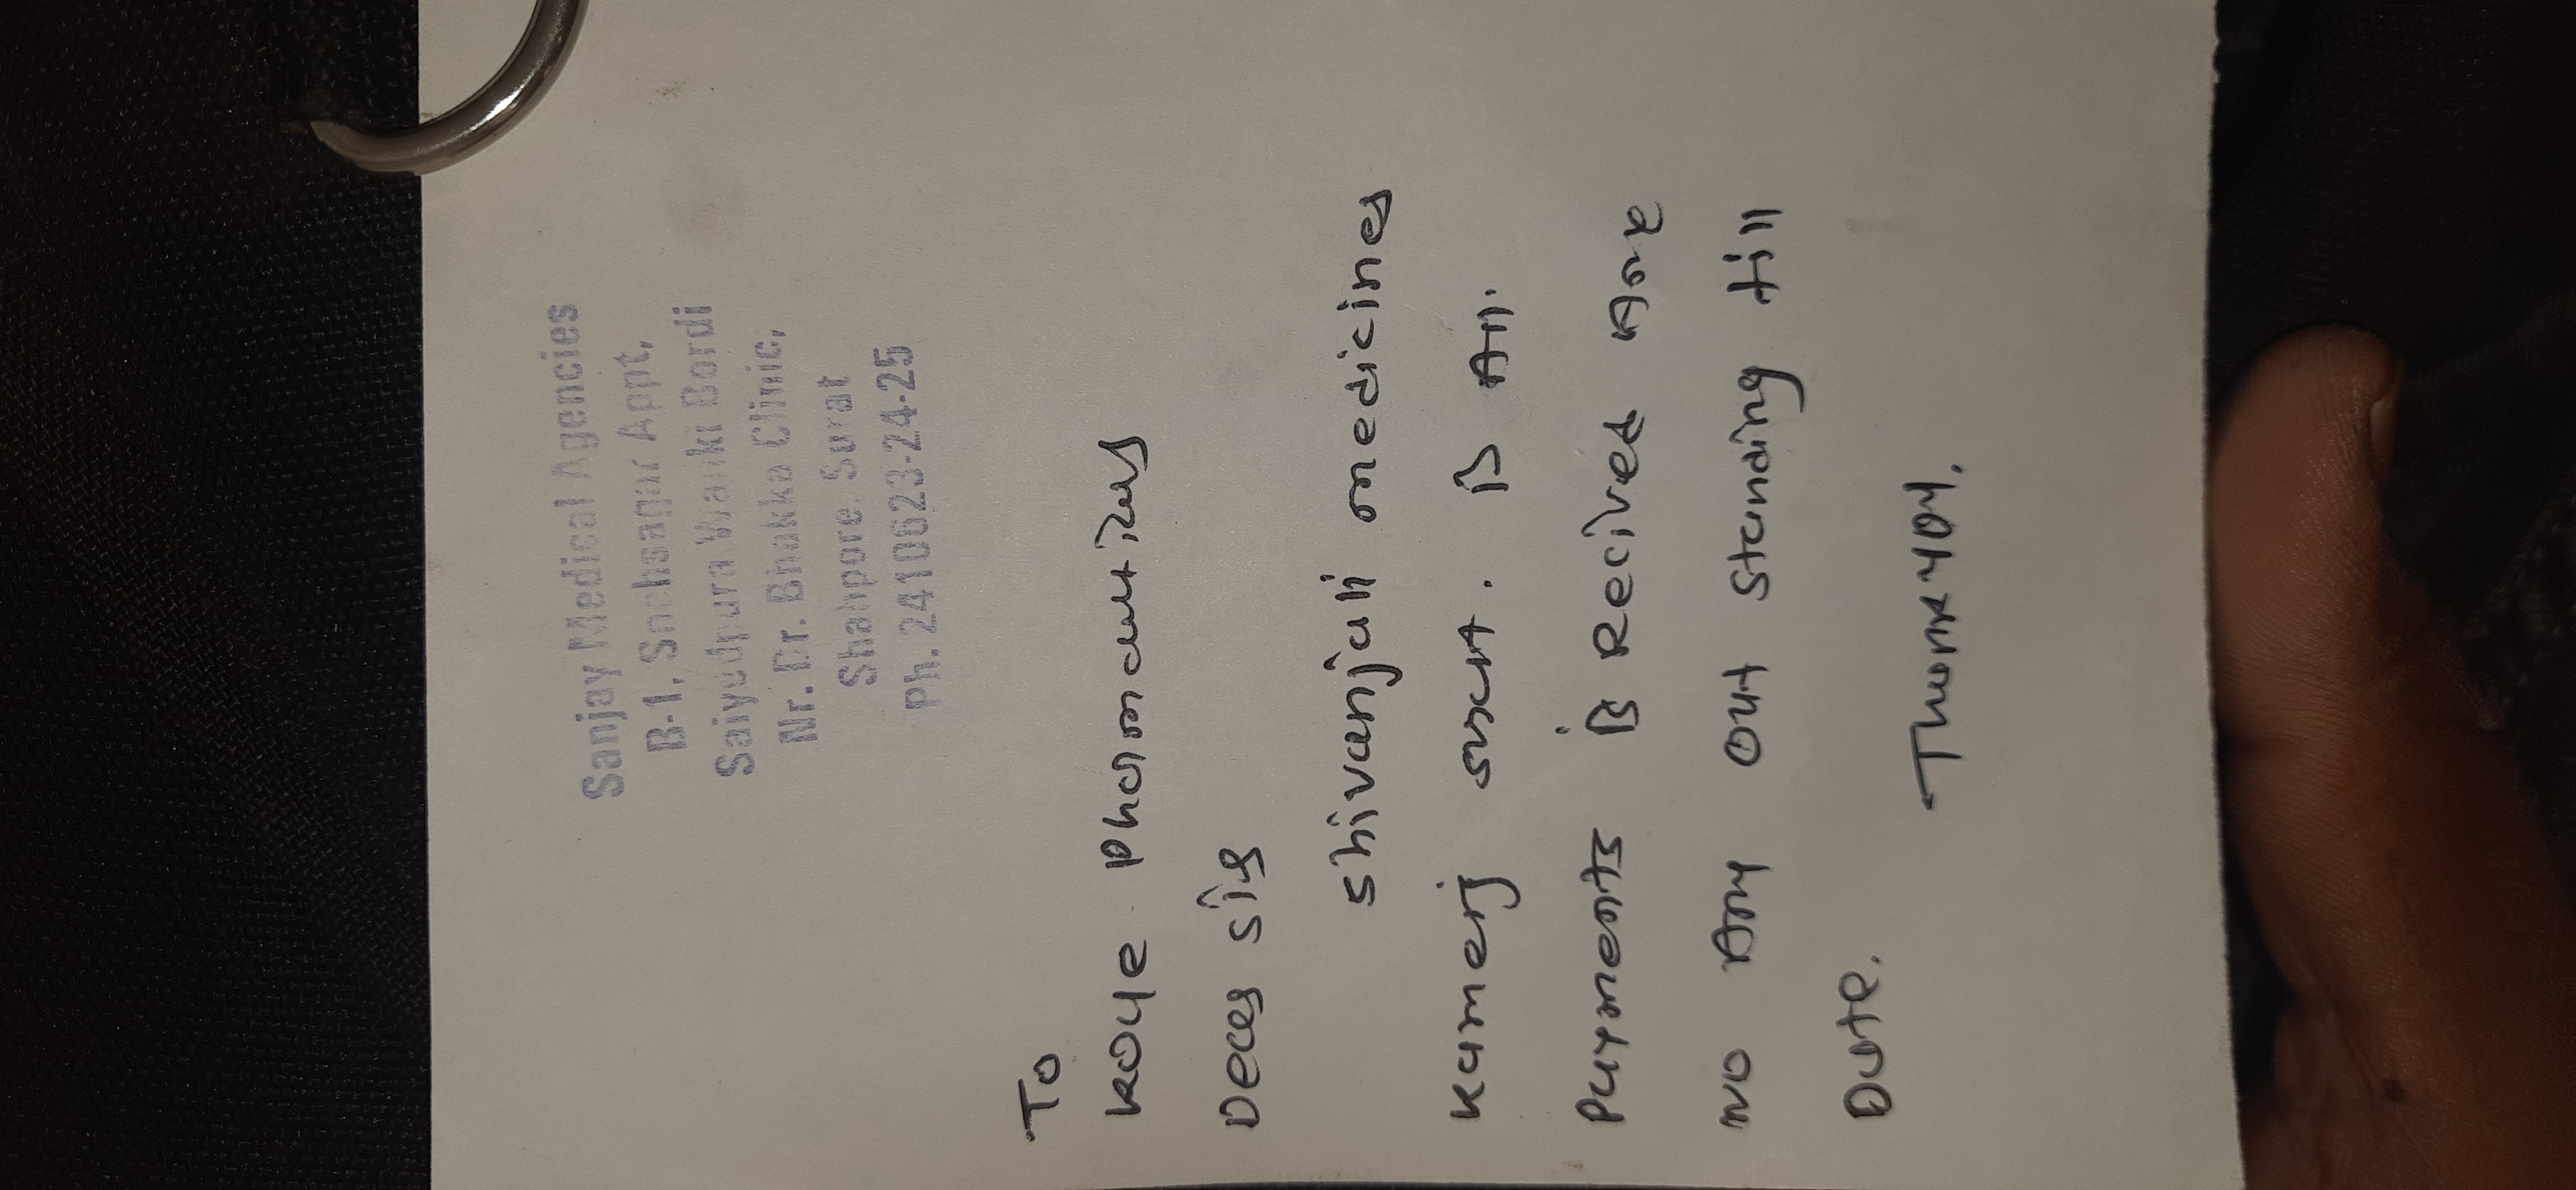 Sanjay Medical Agencies
B-1, Snehsagar Appt,
Saiyedpura Wanki Bordi
Nr. Dr. Bhakka Clinic,
Shahpore, Surat
Ph. 2410623-24-25
To
Deas sir
shivanjali medicines
Kamrej surat. is All.
Payments is Recived Are
No Any out standing till
Date.